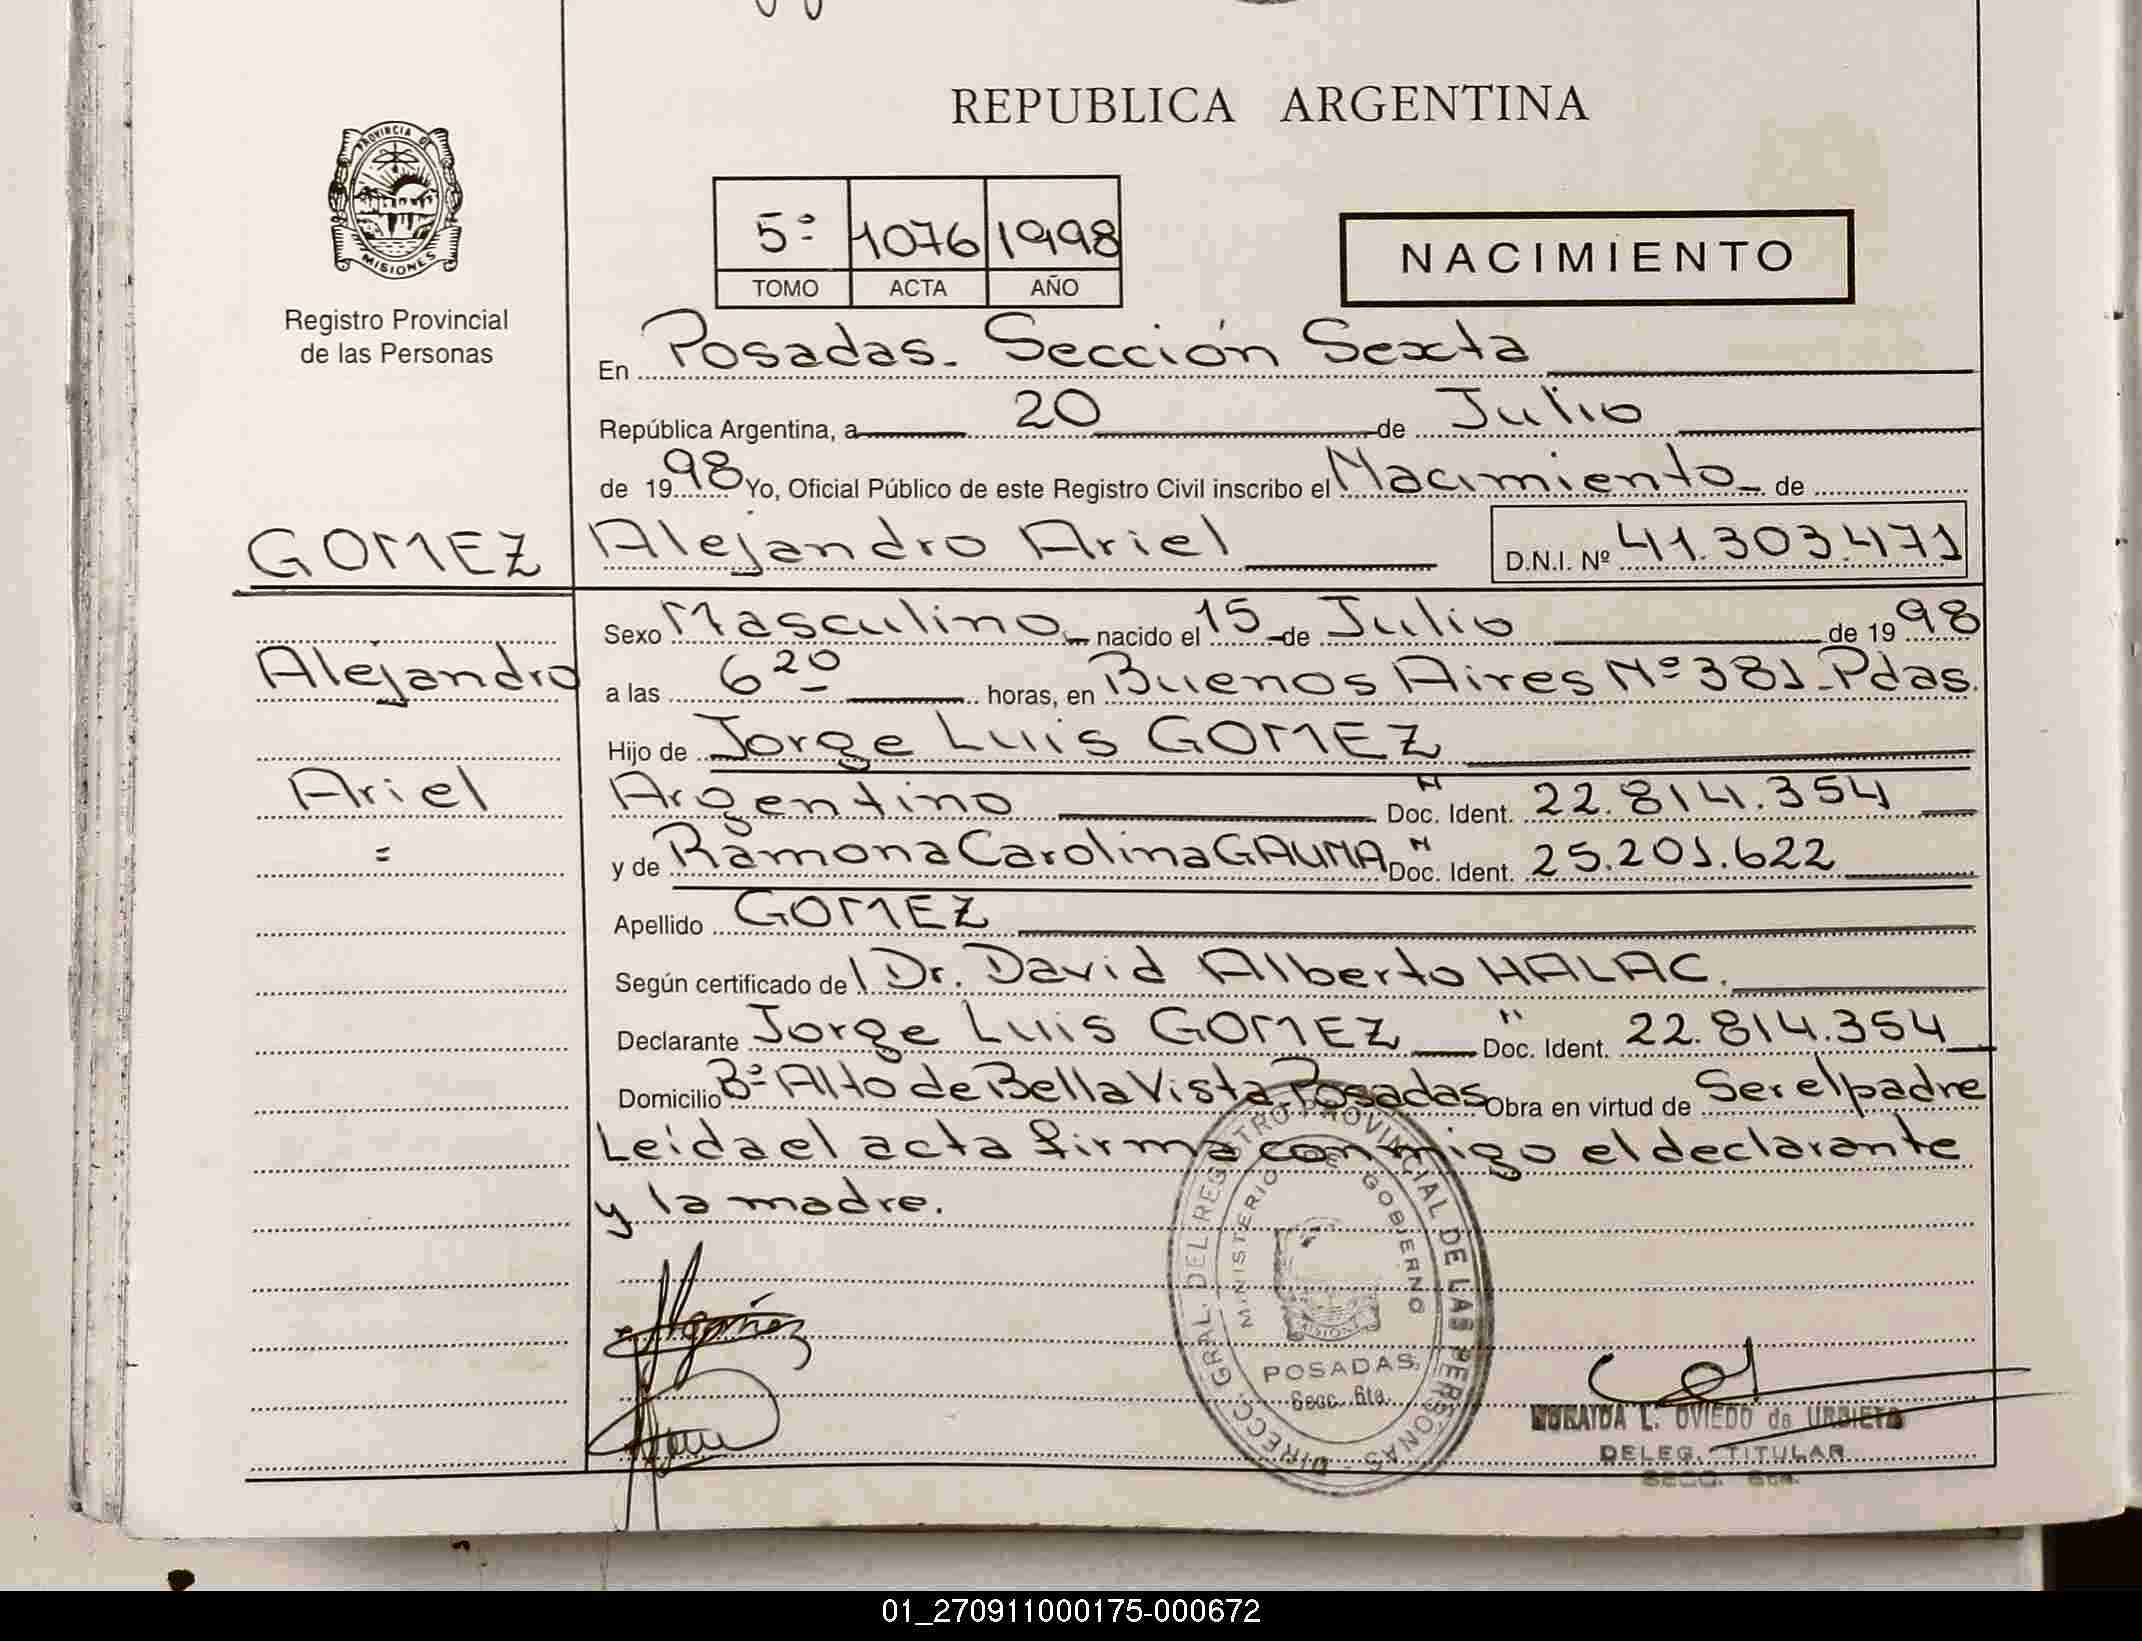 REPUBLICA ARGENTINA
PROVINCIA DE
MISIONES
Registro Provincial
de las Personas
5º 1076 1998
TOMO ACTA AÑO
NACIMIENTO
En Posadas. Sección Sexta
República Argentina, a 20 de Julio
de 1998 Yo, Oficial Público de este Registro Civil inscribo el Nacimiento de
GOMEZ Alejandro Ariel D.N.I. Nº 41.303.471
Sexo Masculino nacido el 15 de Julio de 1998
Alejandro a las 6 20 horas, en Buenos Aires Nº 381 - Pdas.
Hijo de Jorge Luis GOMEZ
Ariel Argentino Doc. Ident. 22.814.354
= y de Ramona Carolina GAUNA Doc. Ident. 25.201.622
Apellido GOMEZ
Según certificado de l Dr. David Alberto HALAC.
Declarante Jorge Luis GOMEZ " Doc. Ident. 22.814.354
Domicilio Bº Alto de Bella Vista, Posadas Obra en virtud de Ser el padre
Leída el acta firma conmigo el declarante
y la madre.
DIRECC. GRAL. DEL REGISTRO PROVINCIAL DE LAS PERSONAS
MINISTERIO DE GOBIERNO
MISIONES
POSADAS,
Secc. 6ta.
L. OVIEDO de URBIETA
DELEG. TITULAR
SECC. 6ta.
01_270911000175-000672